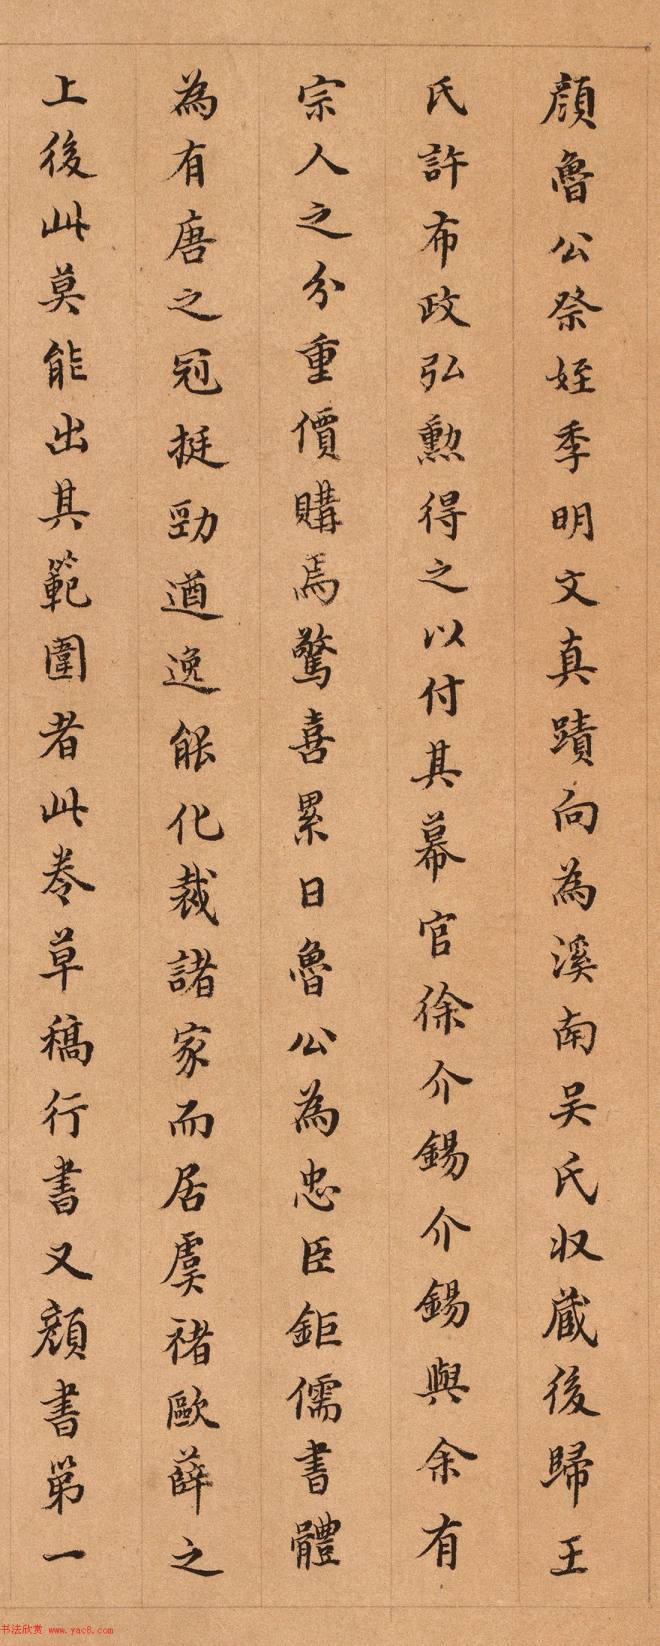 顔魯公祭姪季明文真蹟向為溪南吴氏収蔵後歸王
氏許布政弘勲得之以付其幕官徐介錫介錫與余有
宗人之分重價購焉驚喜累日魯公為忠臣鉅儒書體
為有唐之冠挺勁遒逸能化裁諸家而居虞褚歐薛之
上後此莫能出其範圍者此卷草稿行書又顔書第一
书法欣赏 www.yac8.com